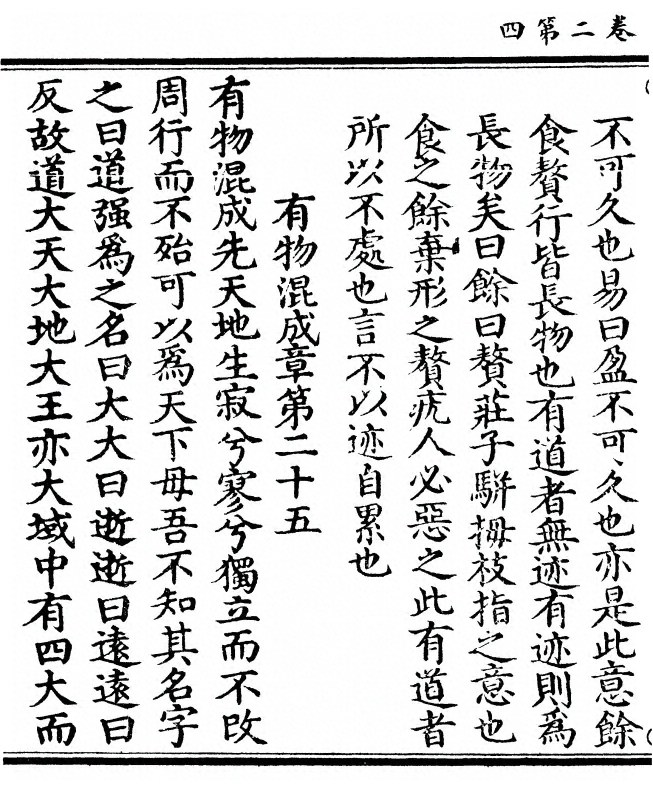 卷二第四
不可久也易曰盈不可久也亦是此意餘
食贅行皆長物也有道者無迹有迹則爲
長物矣曰餘曰贅莊子駢拇枝指之意也
食之餘棄形之贅疣人必惡之此有道者
所以不處也言不以迹自累也
有物混成章第二十五
有物混成先天地生寂兮寥兮獨立而不改
周行而不殆可以爲天下母吾不知其名字
之曰道强爲之名曰大大曰逝逝曰遠遠曰
反故道大天大地大王亦大域中有四大而